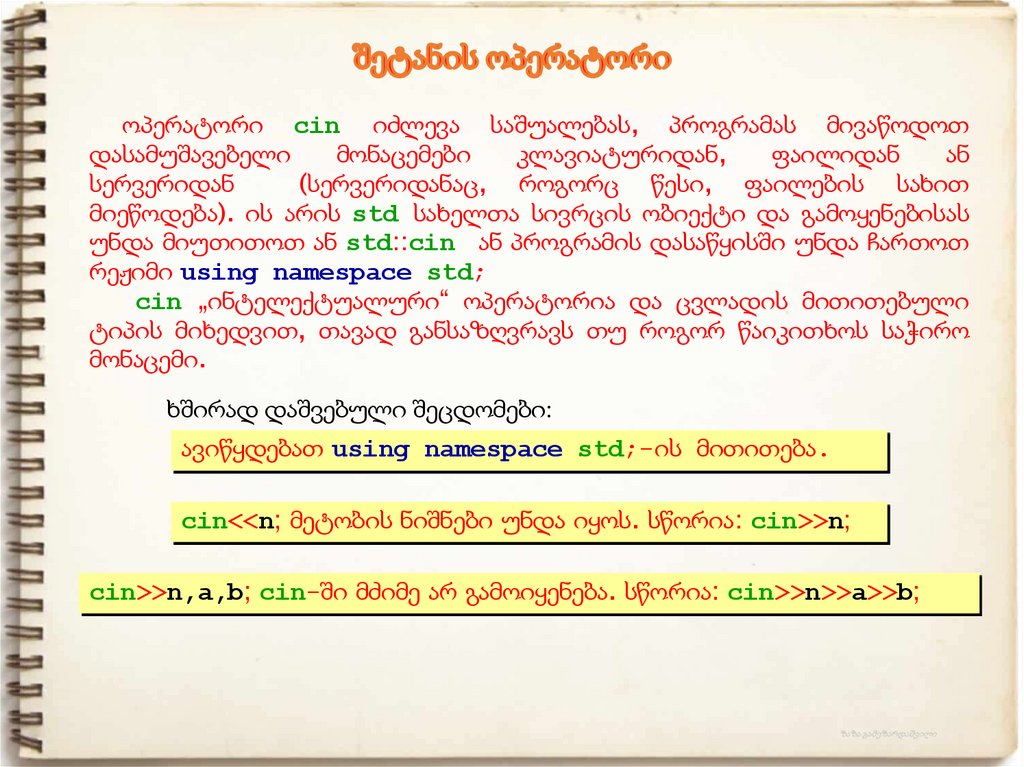 შეტანის ოპერატორი
ოპერატორი cin იძლევა საშუალებას, პროგრამას მივაწოდოთ
დასამუშავებელი მონაცემები კლავიატურიდან, ფაილიდან ან
სერვერიდან (სერვერიდანაც, როგორც წესი, ფაილების სახით
მიეწოდება). ის არის std სახელთა სივრცის ობიექტი და გამოყენებისას
უნდა მიუთითოთ ან std::cin ან პროგრამის დასაწყისში უნდა ჩართოთ
რეჟიმი using namespace std;
cin „ინტელექტუალური“ ოპერატორია და ცვლადის მითითებული
ტიპის მიხედვით, თავად განსაზღვრავს თუ როგორ წაიკითხოს საჭირო
მონაცემი.
ხშირად დაშვებული შეცდომები:
ავიწყდებათ using namespace std;-ის მითითება.
cin<<n; მეტობის ნიშნები უნდა იყოს. სწორია: cin>>n;
cin>>n,a,b; cin-ში მძიმე არ გამოიყენება. სწორია: cin>>n>>a>>b;